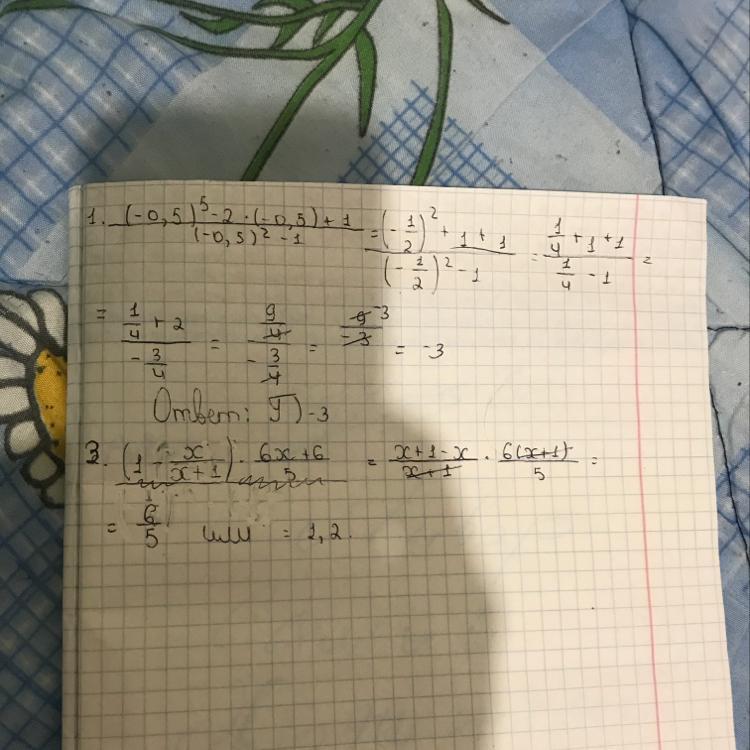 1. ((-0,5)^5 - 2 · (-0,5) + 1) / ((-0,5)^2 - 1) = ((-1/2)^2 + 1 + 1) / ((-1/2)^2 - 1) = (1/4 + 1 + 1) / (1/4 - 1) =
= (1/4 + 2) / (-3/4) = (9/4) / (-3/4) = 9 -3 / -3 = -3
Ответ: Г) -3
3. (1 - x/(x+1)) · (6x+6)/5 = (x+1-x)/(x+1) · 6(x+1)/5 =
= 6/5 или = 1,2.